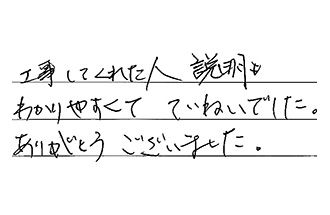 工事してくれた人 説明も
わかりやすくて ていねいでした。
ありがとう ございました。